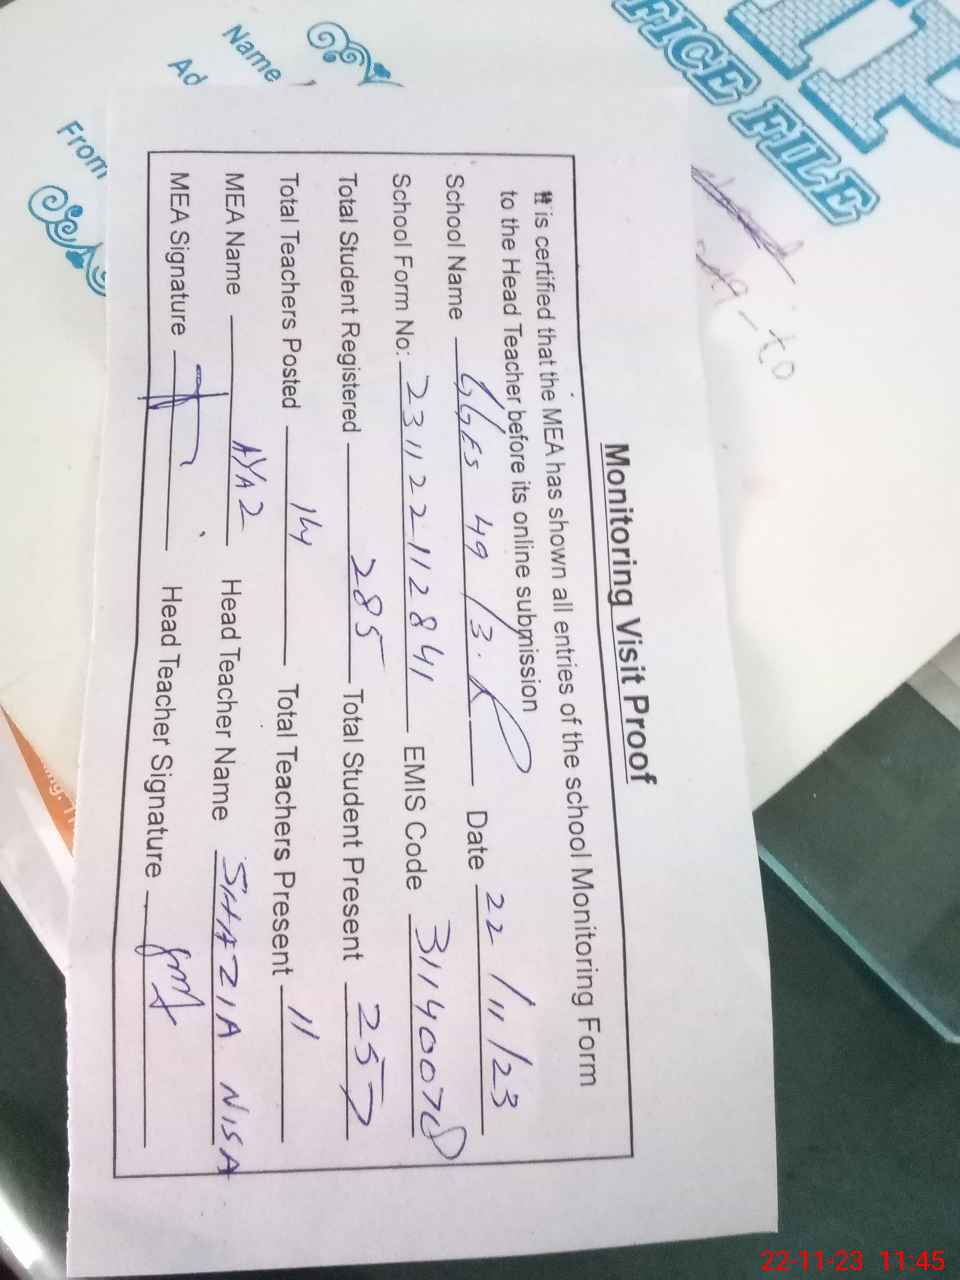 Monitoring Visit Proof
It is certified that the MEA has shown all entries of the school Monitoring Form
to the Head Teacher before its online submission
School Name GGES 49/3.R Date 22/11/23
School Form No: 231122112841 EMIS Code 31140078
Total Student Registered 285 Total Student Present 257
Total Teachers Posted 14 Total Teachers Present 11
MEA Name AYAZ Head Teacher Name SHAZIA NISA
MEA Signature Head Teacher Signature
FICE FILE
Name
Ad
From
22-11-23 11:45